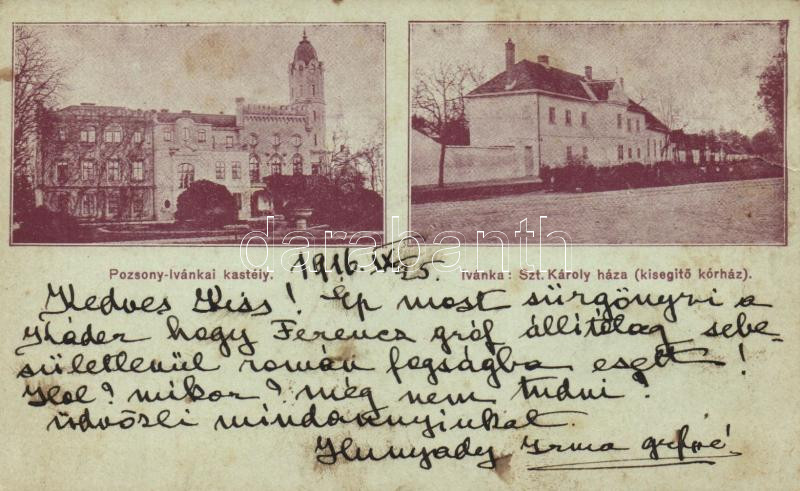 Pozsony-Ivánkai kastély.
Ivánka: Szt. Károly háza (kisegitő kórház).
darabanth
1916. IX/25.
Kedves Kiss! Ép most sürgönyzi a
Káder hogy Ferencz gróf állitólag sebe-
sületlenül román fogságba esett!
Hol? mikor? még nem tudni!
üdvözli mindannyiukat
Hunyady Irma grfné